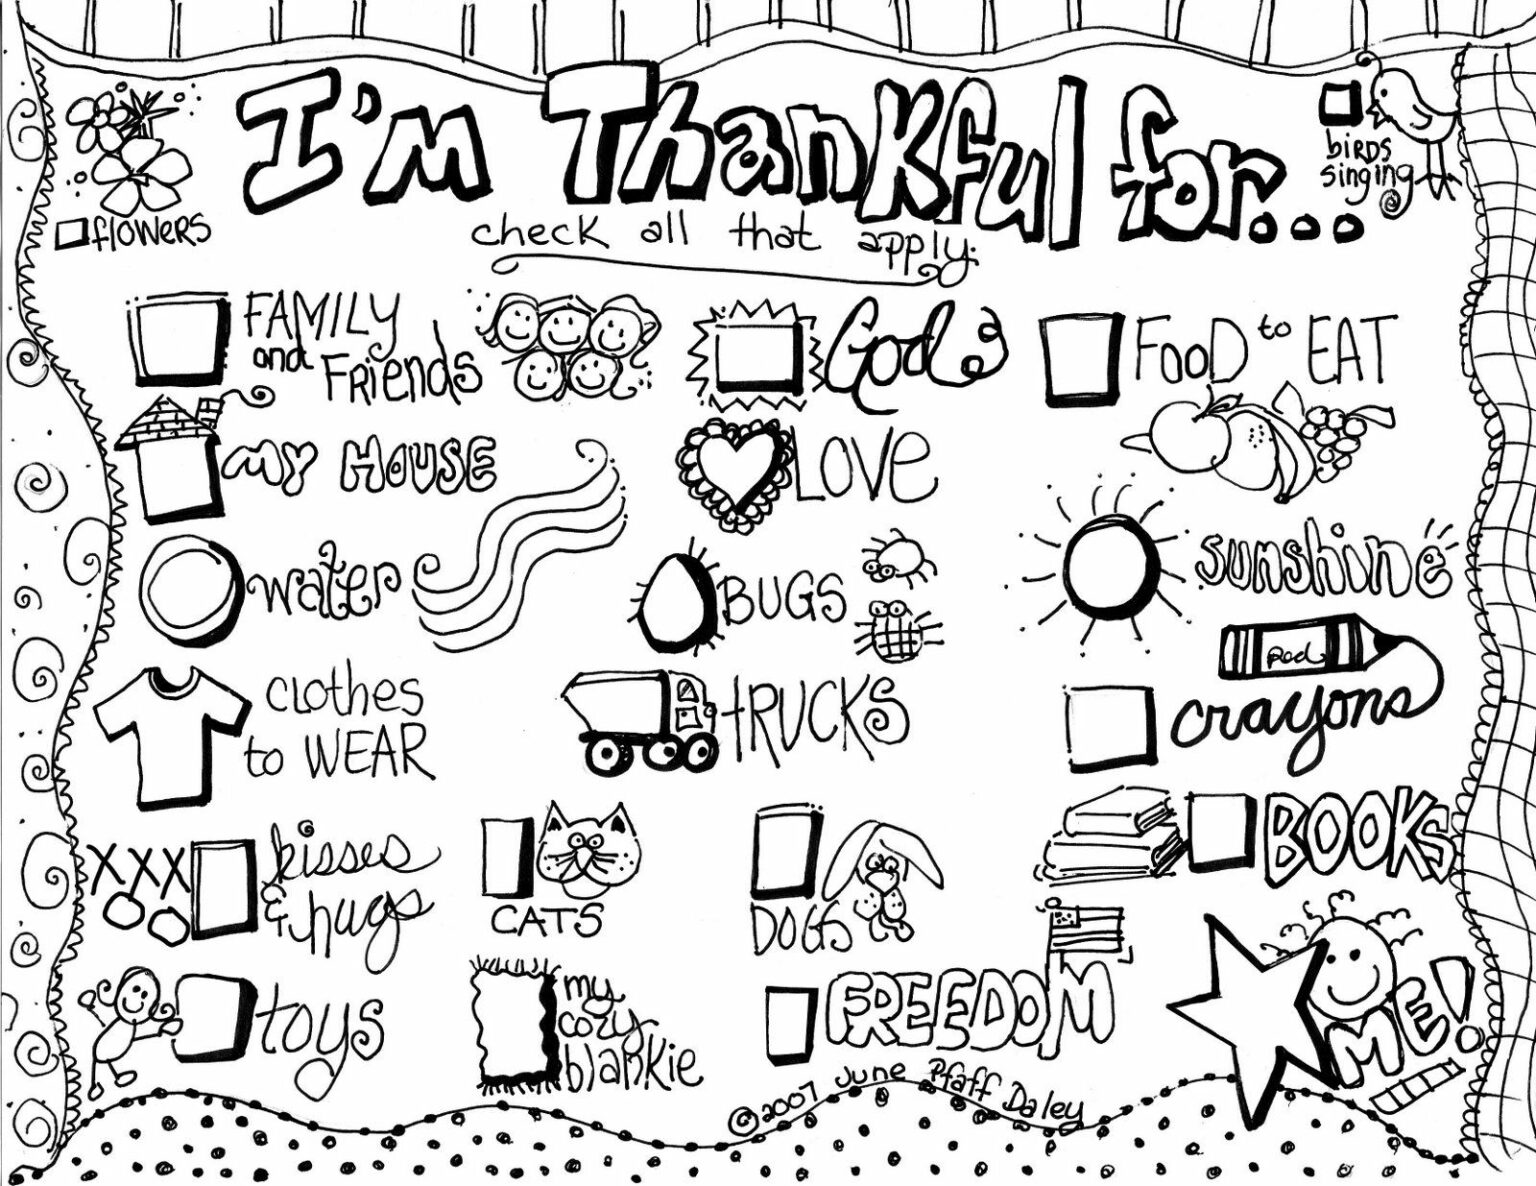 I'm Thankful for...
check all that apply.
flowers
birds
singing
FAMILY
and Friends
God
FOOD to EAT
MY HOUSE
LOVE
water
BUGS
sunshine
Red
crayons
clothes
to WEAR
tRUCKS
BOOKS
XXX
kisses
& hugs
CATS
DOGS
toys
my
cozy
blankie
FREEDOM
ME!
©2007 June Pfaff Daley